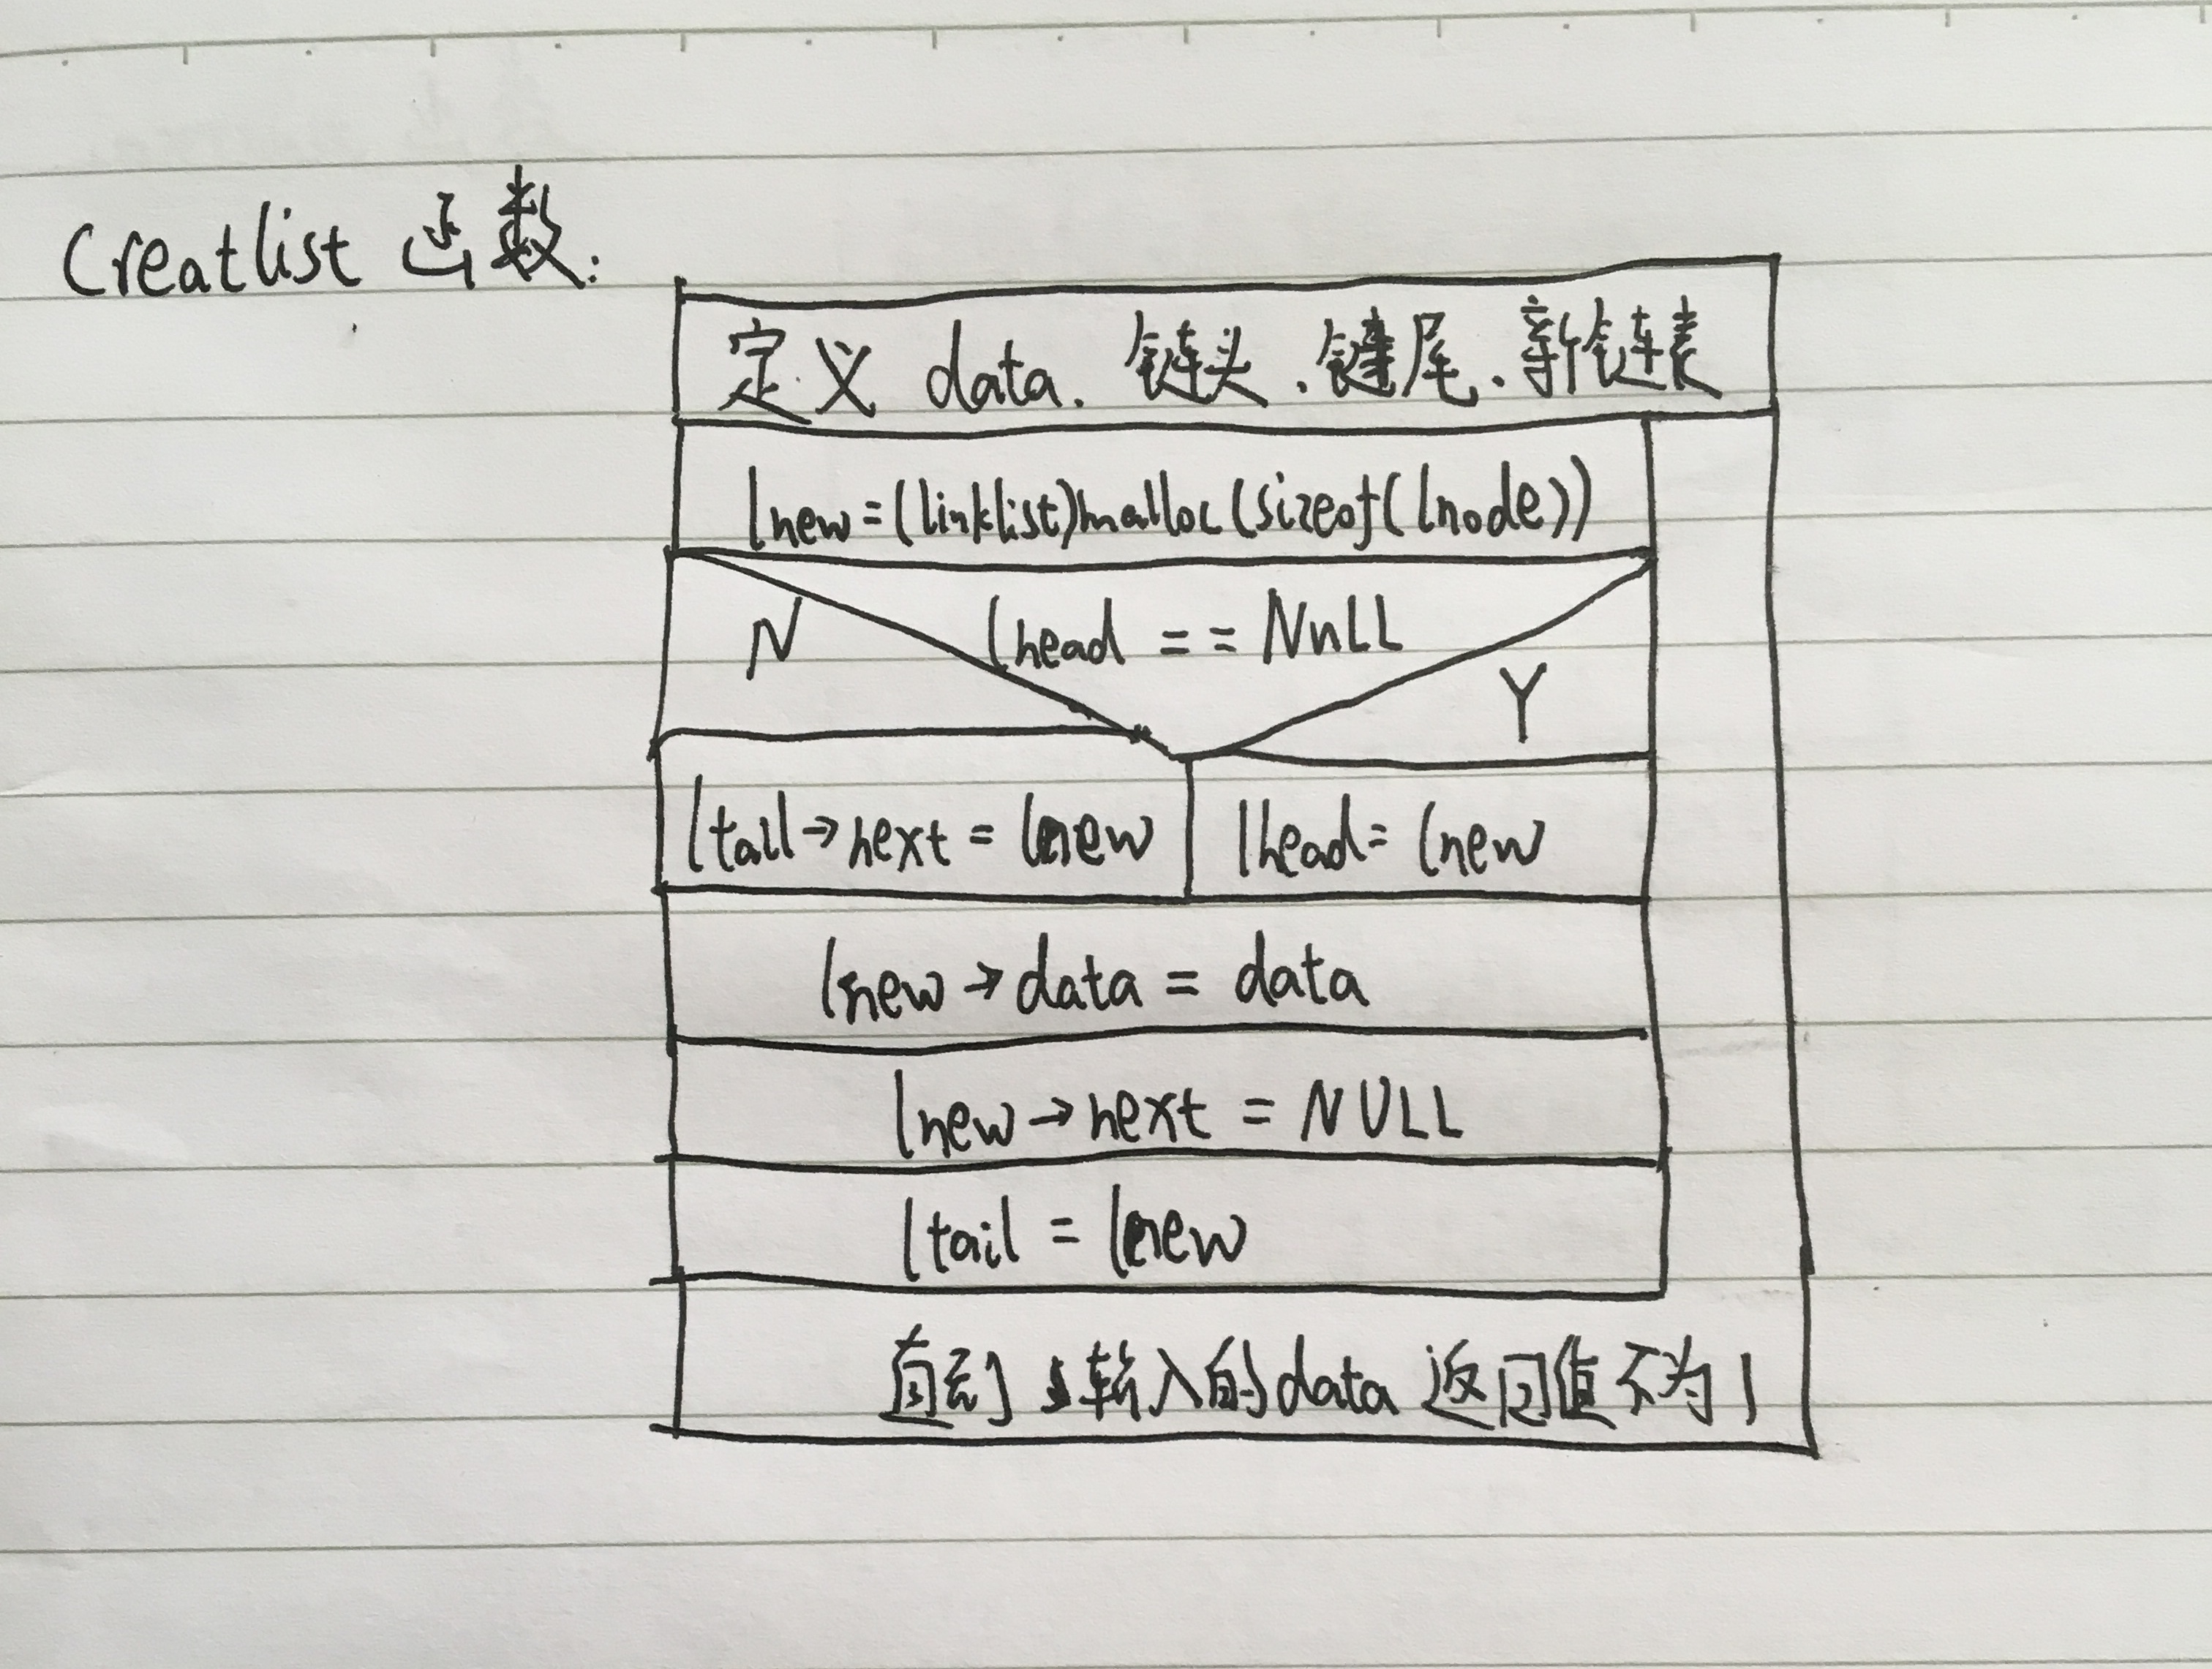 Creatlist 函数:
定义 data. 链头、键尾、新链表
lnew=(linklist)malloc(sizeof(lnode))
N lhead == NuLL Y
ltail→next = lnew lhead= lnew
lnew→data = data
lnew→next = NULL
ltail = lnew
直到输入的data返回值不为1